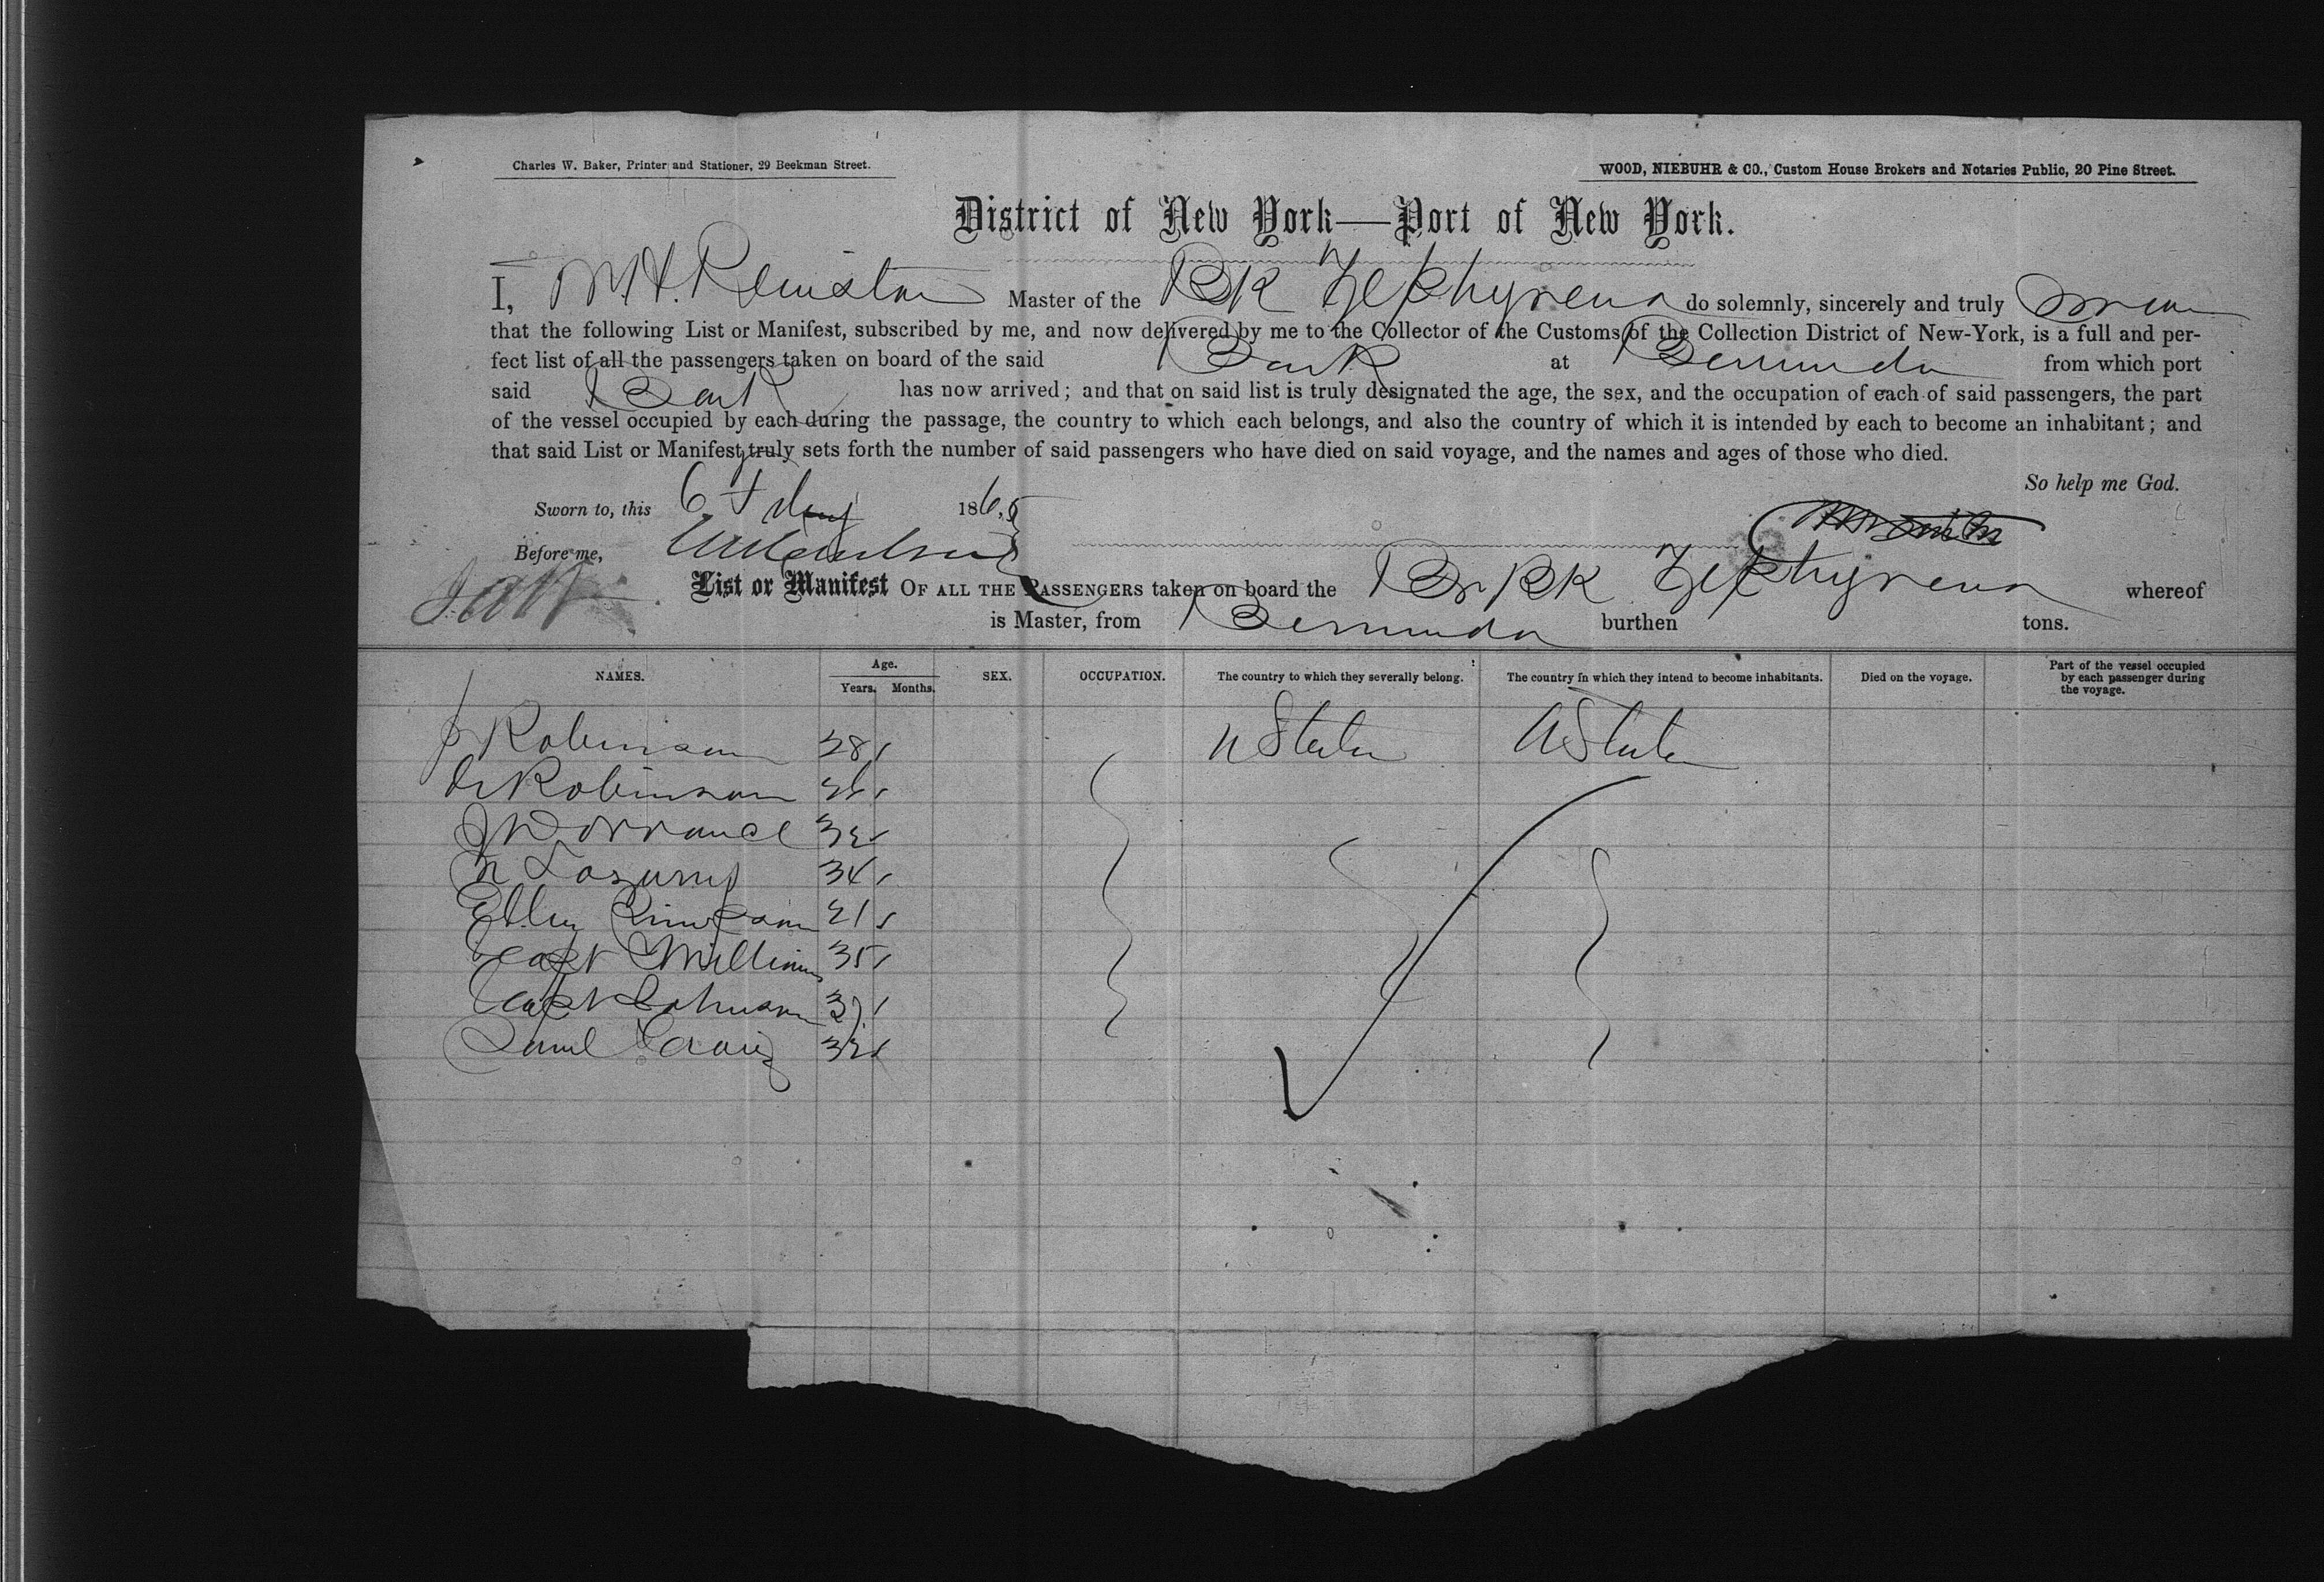 Charles W. Baker, Printer and Stationer, 29 Beekman Street.
WOOD, NIEBUHR & CO., Custom House Brokers and Notaries Public, 20 Pine Street.
District of New York—Port of New York.
I, Master of the Bk Zephyrena do solemnly, sincerely and truly swear
that the following List or Manifest, subscribed by me, and now delivered by me to the Collector of the Customs of the Collection District of New-York, is a full and per-
fect list of all the passengers taken on board of the said Bark at Bermuda from which port
said Bark has now arrived; and that on said list is truly designated the age, the sex, and the occupation of each of said passengers, the part
of the vessel occupied by each during the passage, the country to which each belongs, and also the country of which it is intended by each to become an inhabitant; and
that said List or Manifest truly sets forth the number of said passengers who have died on said voyage, and the names and ages of those who died.
So help me God.
Sworn to, this 6 1865
Before me,
List or Manifest OF ALL THE PASSENGERS taken on board the Br Bk Zephyrena whereof
is Master, from Bermuda burthen tons.
NAMES. Age. Years. Months. SEX. OCCUPATION. The country to which they severally belong. The country in which they intend to become inhabitants. Died on the voyage. Part of the vessel occupied by each passenger during the voyage.
Robinson 28 U States U States
Robinson 26
J Dorrance 32
34
21
Capt Williams 35
Capt Johnson 37
Saml Craig 32